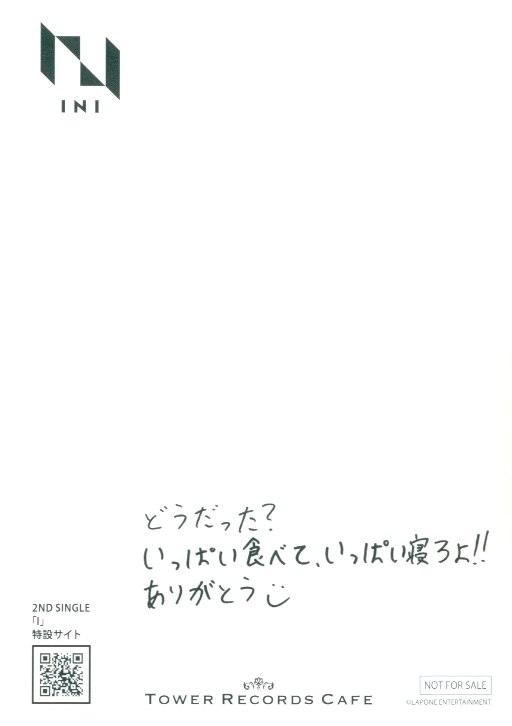 INI
どうだった?
いっぱい食べて、いっぱい寝ろよ!!
ありがとう
2ND SINGLE
「I」
特設サイト
TOWER RECORDS CAFE
NOT FOR SALE
©LAPONE ENTERTAINMENT